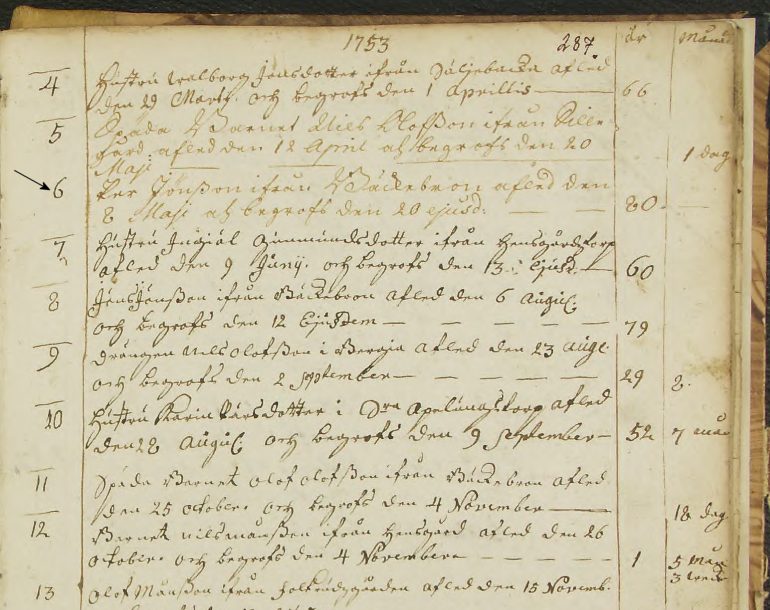 1753 287 år Månad
4 Hustru Walborg Jonsdotter ifrån Säljebacka afled
den 29 Marty. och begrofs den 1 Aprillis 66
5 Späda Barnet Nils Olofsson ifrån
afled den 12 April och begrofs den 20
Maji 1 dag
6 Per Jönsson ifrån Bäckebron afled den
8 Maji och begrofs den 20 ejusd. 80
7 Hustru Gunmundsdotter ifrån Hensgårdstorp
afled den 9 Junij. och begrofs den 13 Ejusd. 60
8 Jöns Jönsson ifrån Bäckebron afled den 6 Augus.
och begrofs den 12 Ejusdem 79
9 Drängen Nils Olofsson i Bergja afled den 23 Augus.
och begrofs den 2 September 29 8.
10 Hustru Karin Larsdotter i Apelungstorp afled
den 28 Augus. och begrofs den 9 September 52 7 mån
11 Späda Barnet Olof Olofsson ifrån Bäckebron afled
den 25 October. och begrofs den 4 November 18 dag
12 Barnet Nils Månsson ifrån Hensgård afled den 26
October. och begrofs den 4 November 1 5 Mån
3 weck
13 Olof Månsson ifrån afled den 15 Novemb.